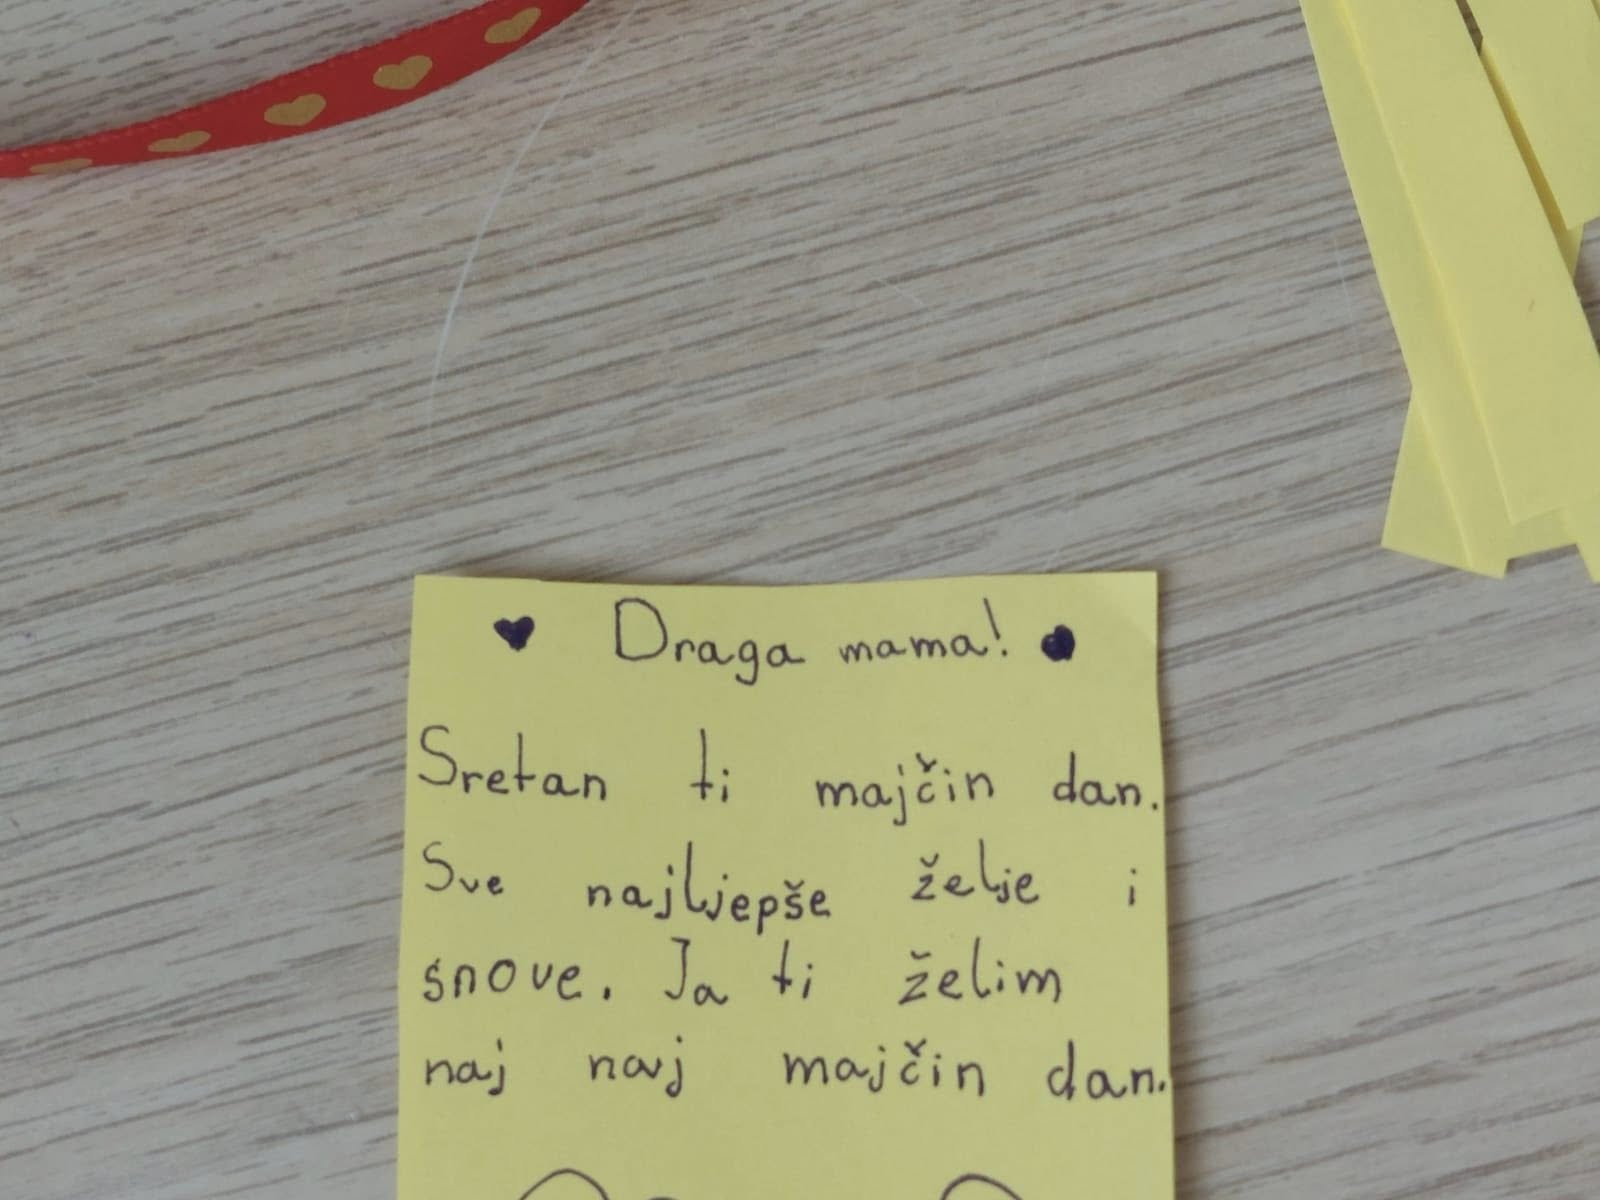 Draga mama!
Sretan ti majčin dan.
Sve najljepše želje i
snove. Ja ti želim
naj naj majčin dan.